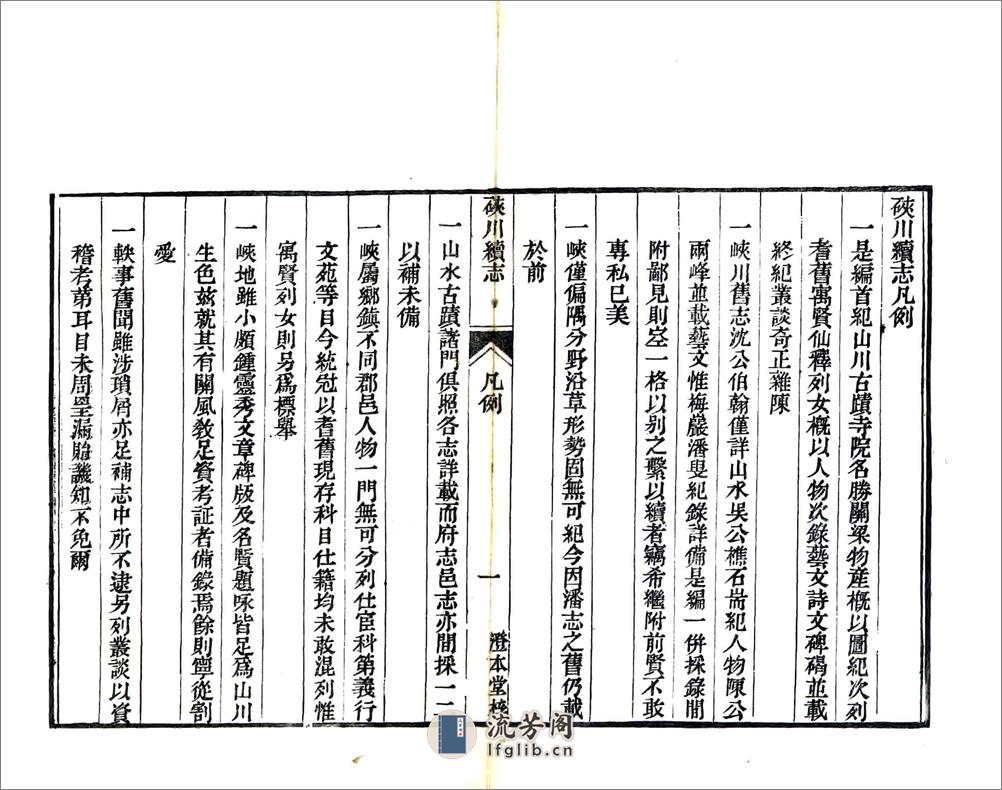 硤川續志凡例
一是編首紀山川古蹟寺院名勝關梁物産槪以圖紀次列
耆舊寓賢仙釋列女槪以人物次錄藝文詩文碑碣並載
終紀叢談奇正雜陳
一峽川舊志沈公伯翰僅詳山水吳公樵石耑紀人物陳公
兩峰並載藝文惟梅巖潘叟紀錄詳備是編一倂採錄間
附鄙見則空一格以别之繫以續者竊希繼附前賢不敢
專私已美
一峽僅偏隅分野沿革形勢固無可紀今因潘志之舊仍載
於前
硤川續志
凡例
一
澄本堂校
一山水古蹟諸門俱照各志詳載而府志邑志亦間採一二
以補未備
一峽屬鄉鎮不同郡邑人物一門無可分列仕宦科第義行
文苑等目今統冠以耆舊現存科目仕籍均未敢混列惟
寓賢列女則另爲標舉
一峽地雖小頗鍾靈秀文章碑版及名賢題咏皆足爲山川
生色玆就其有關風敎足資考証者備錄焉餘則寧從割
愛
一軼事舊聞雖涉瑣屑亦足補志中所不逮另列叢談以資
稽考第耳目未周罣漏貽譏知不免爾
流芳阁
lfglib.cn